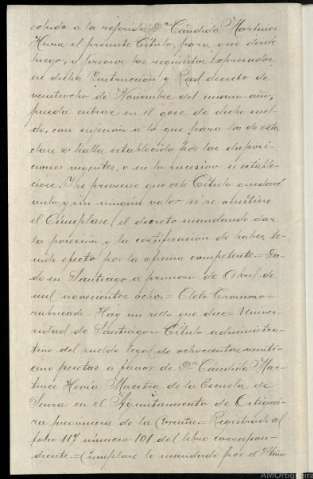 cedido a la referida Dª Cándida Martinez
Hevia el presente Título, para que desde
luego, y previos los requisitos expresados
en dicha Instrucción y Real decreto de
veintiocho de Noviembre del mismo año,
pueda entrar en el goce de dicho suel-
do, con sujeción a lo que para los de esta
clase se halla establecido por las disposi-
ciones vigentes, o en lo sucesivo se estable-
ciere. Y se previene que este Título quedará
nulo y sin ningún valor si se omitiere
el Cúmplase, el decreto mandando dar
la posesión y la certificación de haber te-
nido efecto por la oficina competente = Da-
do en Santiago a primero de Abril de
mil novecientos ocho = Cleto Troncoso =
rubricado = Hay un sello que dice = Univer-
sidad de Santiago = Título administra-
tivo del sueldo legal de ochocientas veinticin-
co pesetas a favor de Dª Cándida Mar-
tinez Hevia Maestra de la Escuela de
en el Ayuntamiento de Ortiguei-
ra provincia de la Coruña = Registrado al
folio 117 número 101 del libro correspon-
diente = Cúmplase lo mandado por el Ilmo